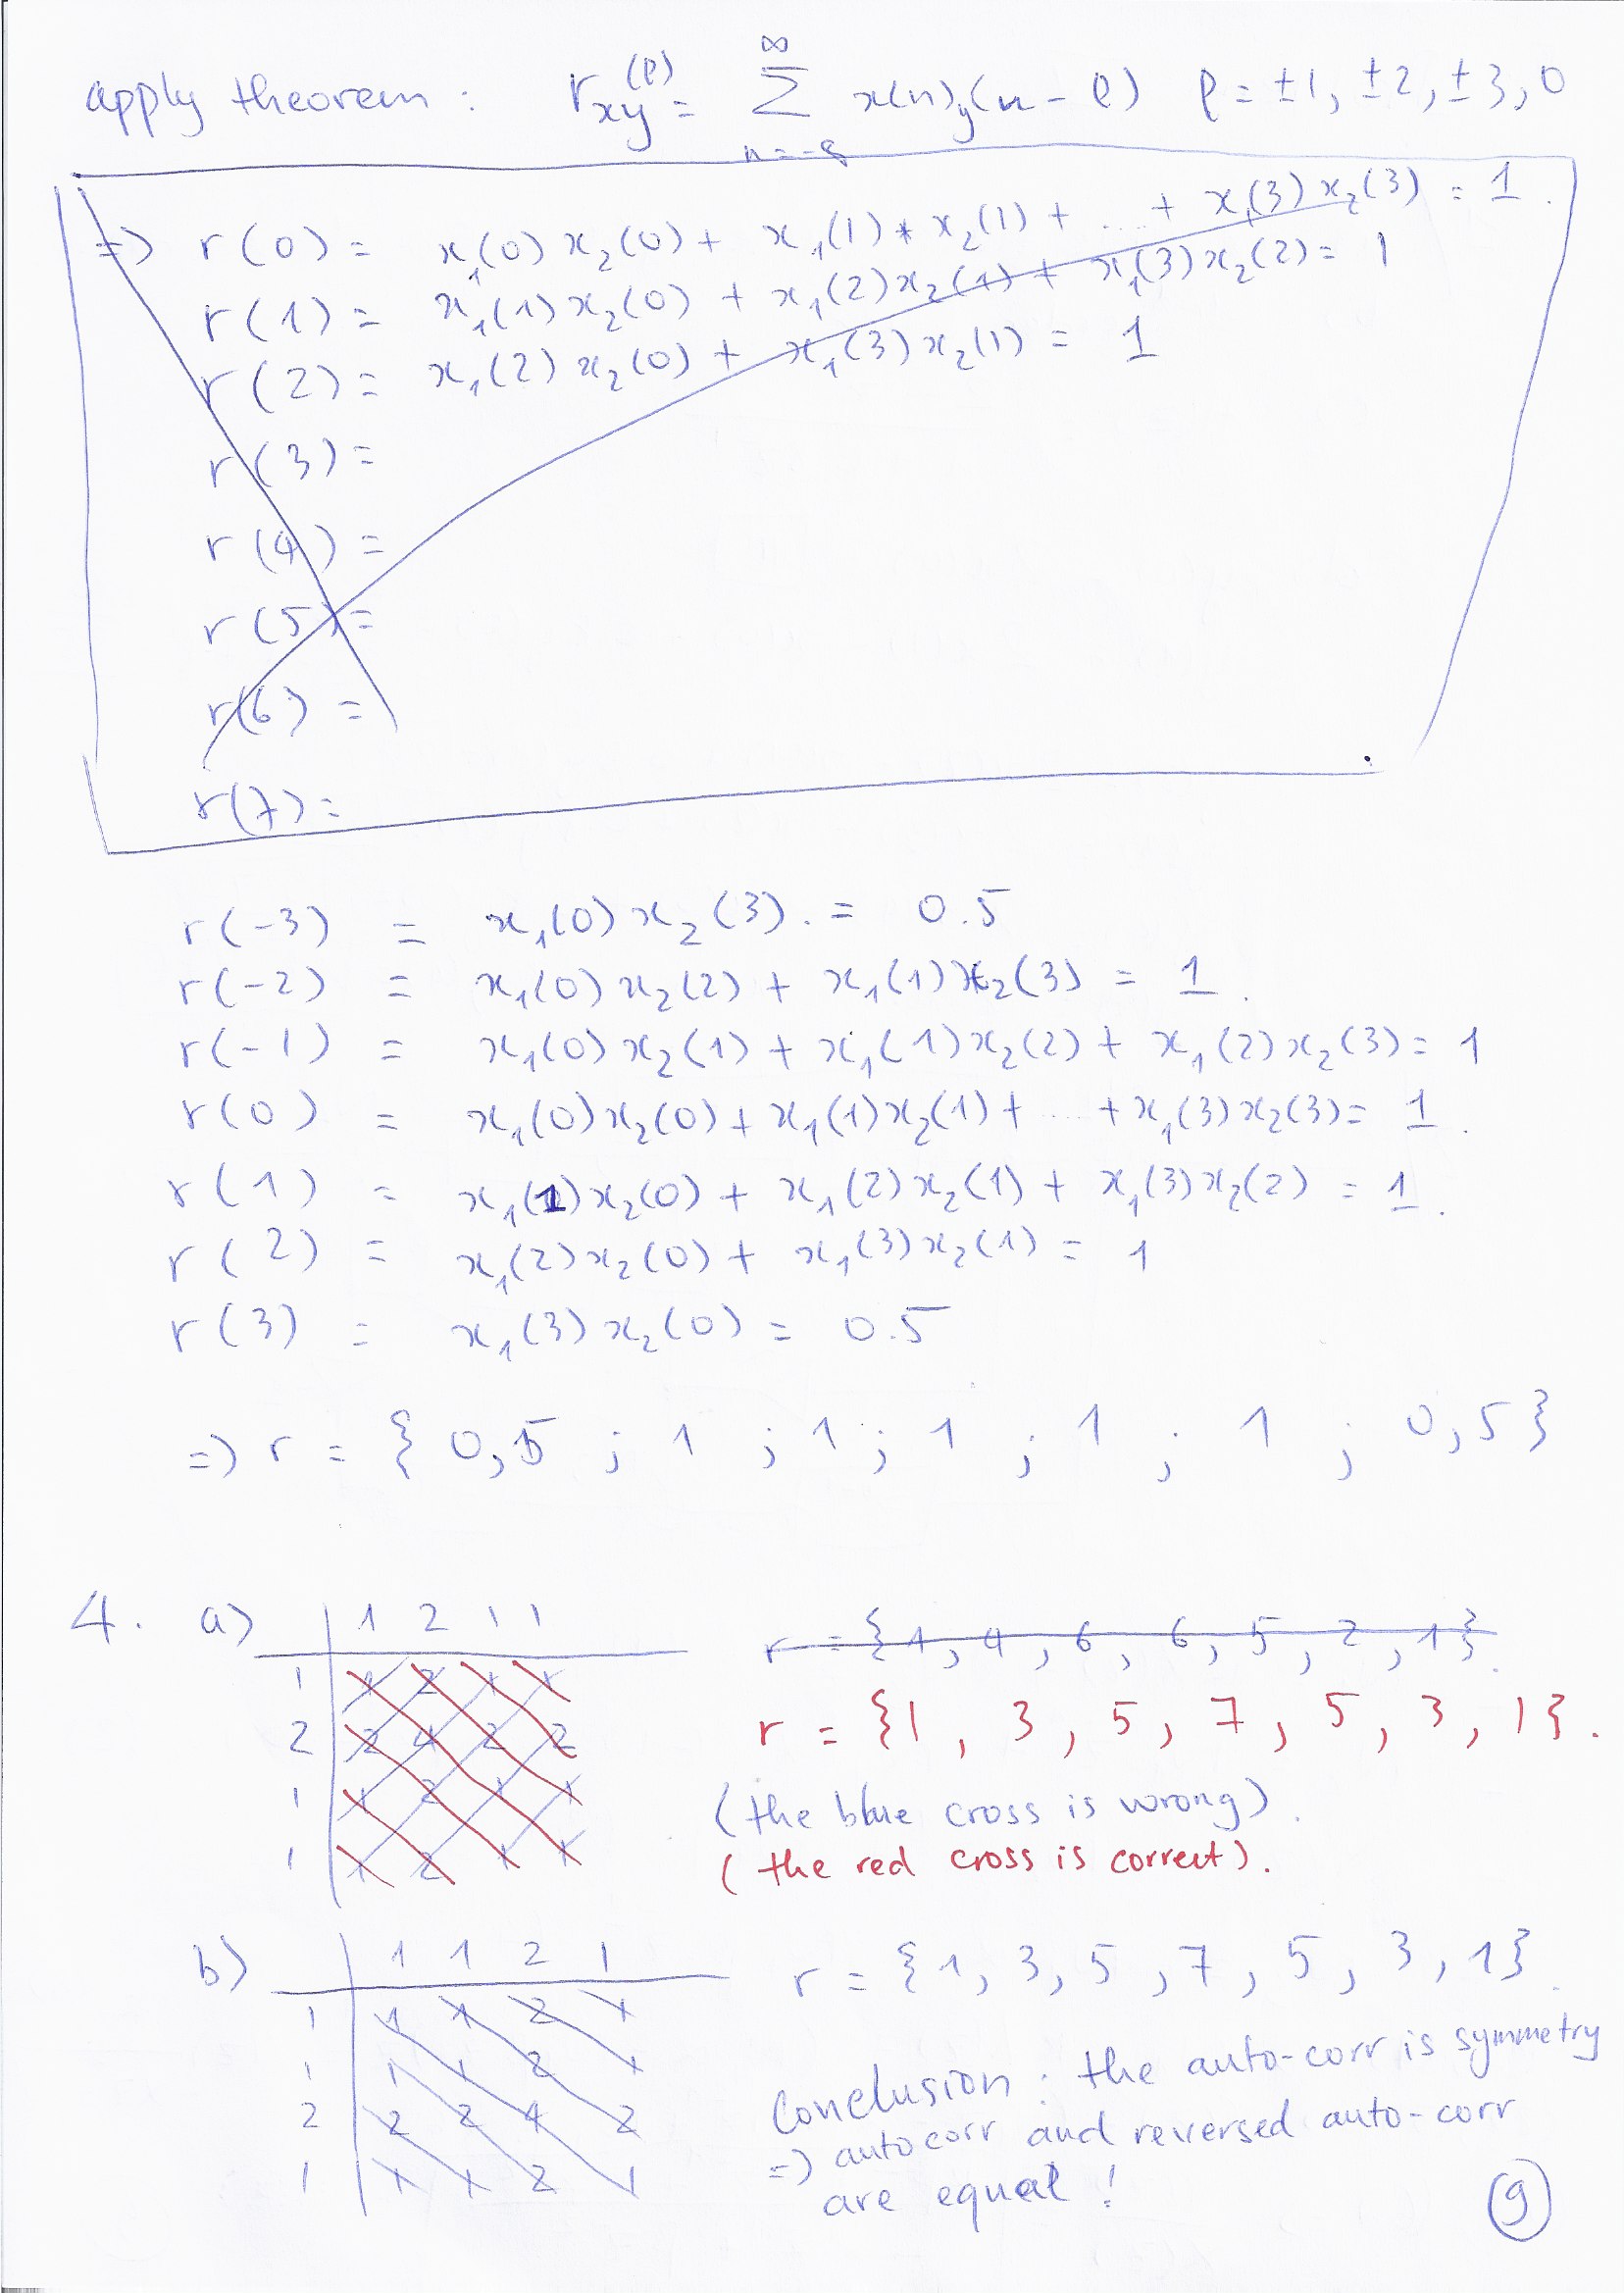 apply theorem : r_xy^(l) = ∑_{n=-∞}^{∞} x(n)y(n-l) l = ±1, ±2, ±3, 0
=> r(0) = x₁(0)x₂(0) + x₁(1)*x₂(1) + ... + x₁(3)x₂(3) = 1.
r(1) = x₁(1)x₂(0) + x₁(2)x₂(1) + x₁(3)x₂(2) = 1
r(2) = x₁(2)x₂(0) + x₁(3)x₂(1) = 1
r(3) =
r(4) =
r(5) =
r(6) =
r(7) =
r(-3) = x₁(0)x₂(3). = 0.5
r(-2) = x₁(0)x₂(2) + x₁(1)x₂(3) = 1.
r(-1) = x₁(0)x₂(1) + x₁(1)x₂(2) + x₁(2)x₂(3) = 1
r(0) = x₁(0)x₂(0) + x₁(1)x₂(1) + ... + x₁(3)x₂(3) = 1.
r(1) = x₁(1)x₂(0) + x₁(2)x₂(1) + x₁(3)x₂(2) = 1.
r(2) = x₁(2)x₂(0) + x₁(3)x₂(1) = 1
r(3) = x₁(3)x₂(0) = 0.5
=> r = { 0,5 ; 1 ; 1 ; 1 ; 1 ; 1 ; 0,5 }
4. a) 1 2 1 1
1 1 2 1 1
2 2 4 2 2
1 1 2 1 1
1 1 2 1 1
r = {1, 4, 6, 6, 5, 2, 1}.
r = {1, 3, 5, 7, 5, 3, 1}.
(the blue cross is wrong).
(the red cross is correct).
b) 1 1 2 1
1 1 1 2 1
1 1 1 2 1
2 2 2 4 2
1 1 1 2 1
r = {1, 3, 5, 7, 5, 3, 1}.
Conclusion : the auto-corr is symmetry
=> autocorr and reversed auto-corr
are equal !
9